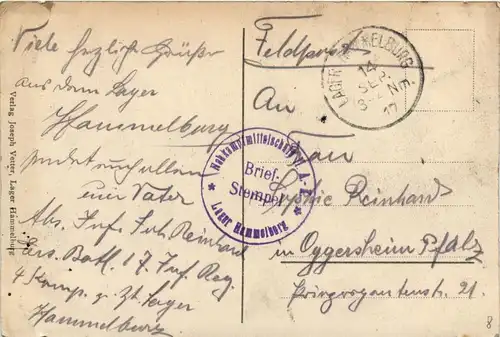 Viele herzliche Grüße
aus dem Lager
Hammelburg
sendet euch allen
euer Vater
Abs. Inf. Reinhard
Ers. Batl. 17. Inf. Reg.
4 Komp. z. Zt. Lager
Hammelburg
Verlag Joseph Vetter, Lager Hammelburg
Feldpost
LAGER HAMMELBURG
14
SEP.
3- N
17
An
Frau
Nahkampfmittelschule A.
Brief-
Stempel
Lager Hammelburg
Sophie Reinhard
in Oggersheim Pfalz
21